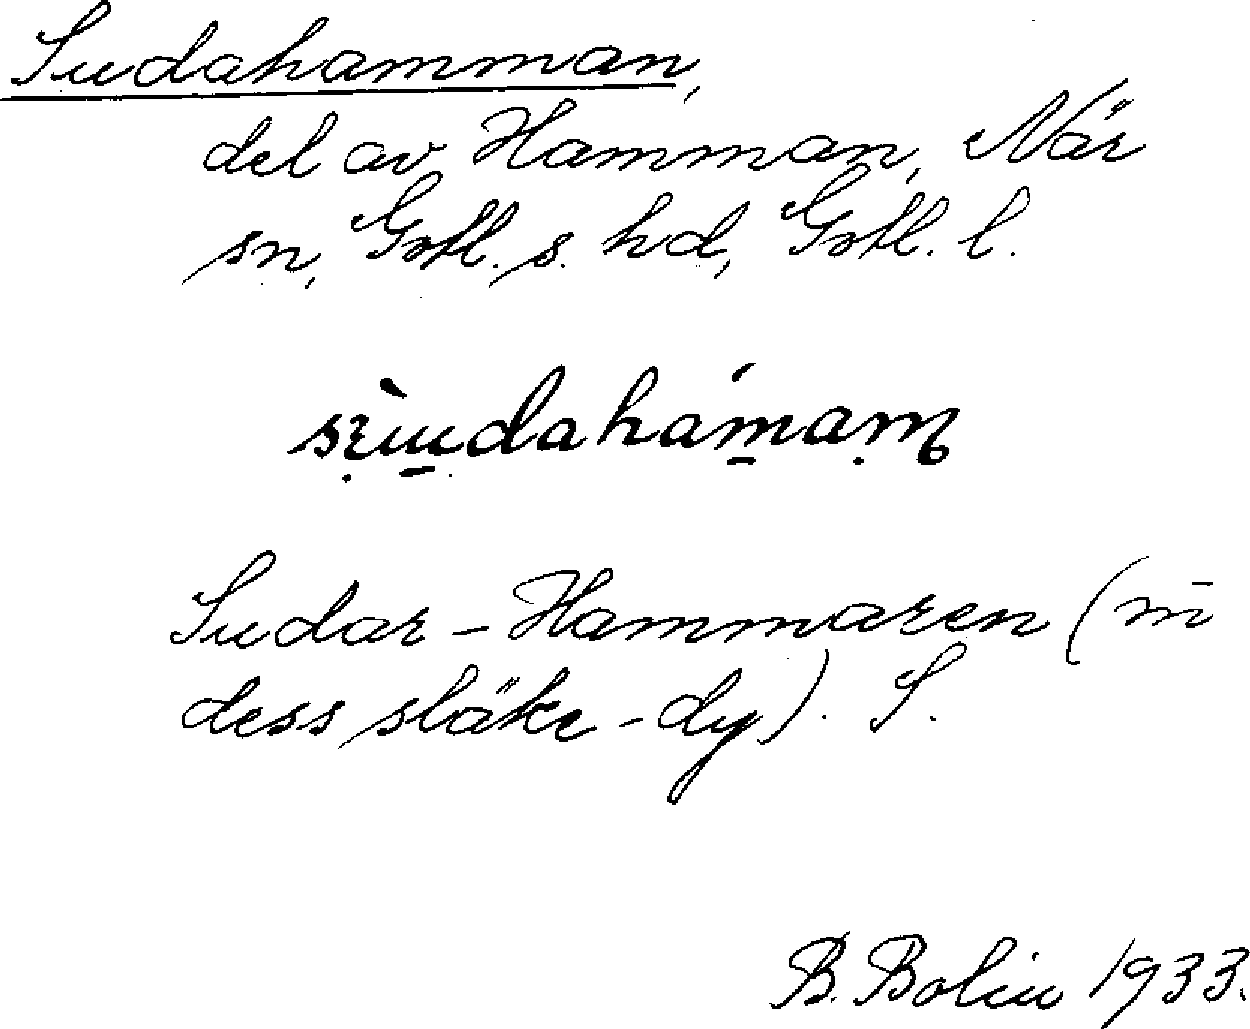 Sudahamman,
del av Hamman, När
sn, Gotl. s. hd, Gotl. l.
Sudar-Hammaren (m̄
dess släke-dy). S.
B. Bolin 1933.